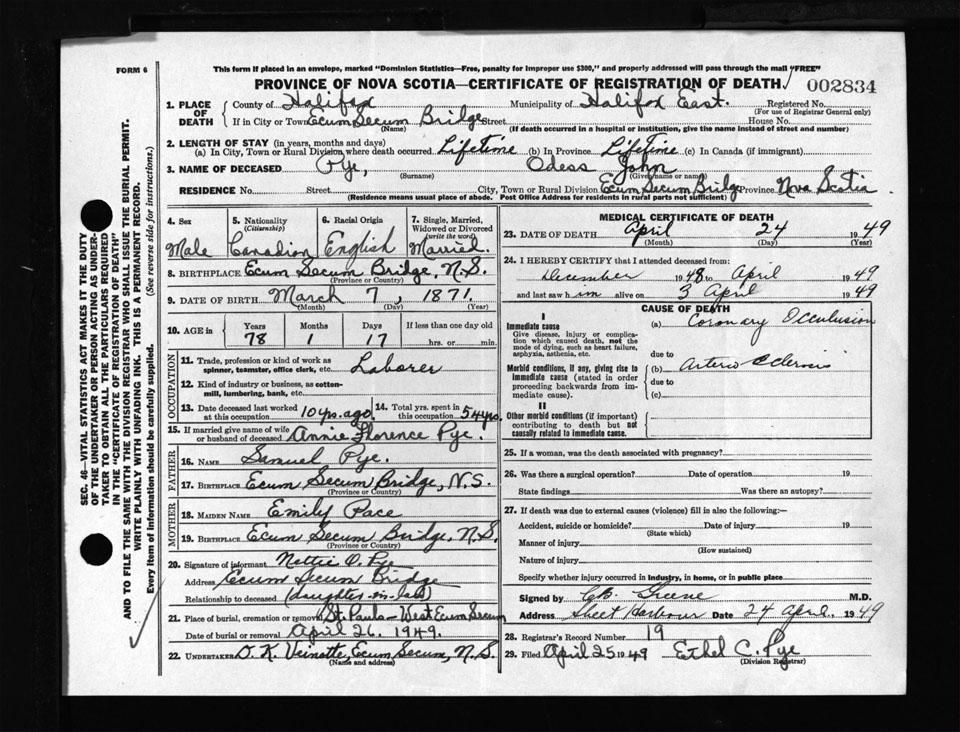 FORM 6
This form if placed in an envelope, marked "Dominion Statistics—Free, penalty for improper use $300," and properly addressed will pass through the mail "FREE"
PROVINCE OF NOVA SCOTIA—CERTIFICATE OF REGISTRATION OF DEATH 002834
1. PLACE OF DEATH County of Halifax Municipality of Halifax East. Registered No.
(For use of Registrar General only)
If in City or Town Ecum Secum Bridge Street House No.
(Name) (If death occurred in a hospital or institution, give the name instead of street and number)
2. LENGTH OF STAY (in years, months and days)
(a) In City, Town or Rural Division where death occurred. Lifetime (b) In Province Lifetime (c) In Canada (if immigrant)
3. NAME OF DECEASED Pye, Odess John
(Surname) (Given name or names)
RESIDENCE No. Street City, Town or Rural Division Ecum Secum Bridge Province Nova Scotia
(Residence means usual place of abode. Post Office Address for residents in rural parts not sufficient)
4. Sex 5. Nationality (Citizenship) 6. Racial Origin 7. Single, Married, Widowed or Divorced (write the word)
Male Canadian English Married.
8. BIRTHPLACE Ecum Secum Bridge, N.S.
(Province or Country)
9. DATE OF BIRTH March 7, 1871.
(Month) (Day) (Year)
10. AGE in Years Months Days If less than one day old
78 1 17 hrs. or min.
OCCUPATION
11. Trade, profession or kind of work as spinner, teamster, office clerk, etc. Laborer
12. Kind of industry or business, as cotton-mill, lumbering, bank, etc.
13. Date deceased last worked at this occupation 10 yrs. ago. 14. Total yrs. spent in this occupation 54 yrs.
15. If married give name of wife or husband of deceased Annie Florence Pye.
FATHER
16. NAME Simuel Pye.
17. BIRTHPLACE Ecum Secum Bridge, N.S.
(Province or Country)
MOTHER
18. MAIDEN NAME Emily Pace
19. BIRTHPLACE Ecum Secum Bridge, N.S.
(Province or Country)
20. Signature of informant Nettie O. Pye
Address Ecum Secum Bridge
Relationship to deceased (daughter-in-law)
21. Place of burial, cremation or removal St. Pauls - West Ecum Secum
Date of burial or removal April 26, 1949.
22. UNDERTAKER D. K. Veinotte, Ecum Secum, N.S.
(Name and address)
MEDICAL CERTIFICATE OF DEATH
23. DATE OF DEATH April 24 1949
(Month) (Day) (Year)
24. I HEREBY CERTIFY that I attended deceased from:
December 1948 to April 1949
and last saw him alive on 3 April 1949
CAUSE OF DEATH
I
Immediate cause
Give disease, injury or complication which caused death, not the mode of dying, such as heart failure, asphyxia, asthenia, etc.
(a) Coronary Occulusion
due to
Morbid conditions, if any, giving rise to immediate cause (stated in order proceeding backwards from immediate cause).
(b) Arterio Sclerosis
due to
(c)
II
Other morbid conditions (if important) contributing to death but not causally related to immediate cause.
25. If a woman, was the death associated with pregnancy?
26. Was there a surgical operation? Date of operation 19
State findings Was there an autopsy?
27. If death was due to external causes (violence) fill in also the following:—
Accident, suicide or homicide? Date of injury 19
(State which)
Manner of injury
(How sustained)
Nature of injury
Specify whether injury occurred in industry, in home, or in public place
Signed by Greene M.D.
Address Sheet Harbour Date 24 April, 1949
28. Registrar's Record Number 19
29. Filed April 25 1949 Ethel C. Pye
(Division Registrar)
SEC. 46—VITAL STATISTICS ACT MAKES IT THE DUTY
OF THE UNDERTAKER OR PERSON ACTING AS UNDER-
TAKER TO OBTAIN ALL THE PARTICULARS REQUIRED
IN THE "CERTIFICATE OF REGISTRATION OF DEATH"
AND TO FILE THE SAME WITH THE DIVISION REGISTRAR WHO SHALL ISSUE THE BURIAL PERMIT.
WRITE PLAINLY WITH UNFADING INK. THIS IS A PERMANENT RECORD.
Every item of information should be carefully supplied. (See reverse side for instructions.)